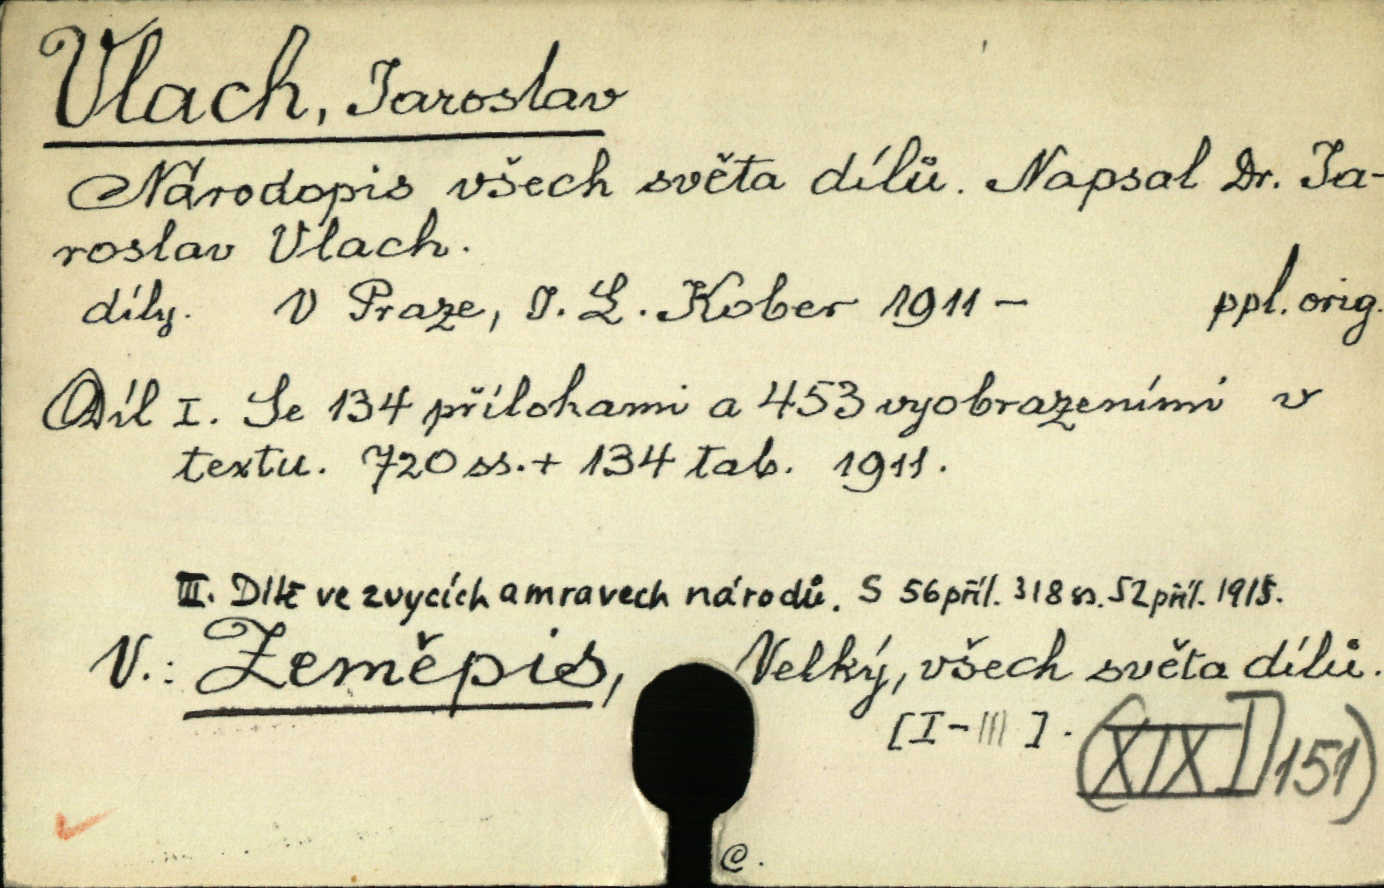 Vlach, Jaroslav
Národopis všech světa dílů. Napsal Dr. Ja-
roslav Vlach.
díly. V Praze, J. L. Kober 1911 – ppl. orig.
Díl I. Se 134 přílohami a 453 vyobrazeními v
textu. 720 ss. + 134 tab. 1911.
III. Dítě ve zvycích a mravech národů. S 56 příl. 318 ss. 52 příl. 1915.
V.: Zeměpis, Velký, všech světa dílů.
[I – III].
(XIX D 151)
C.